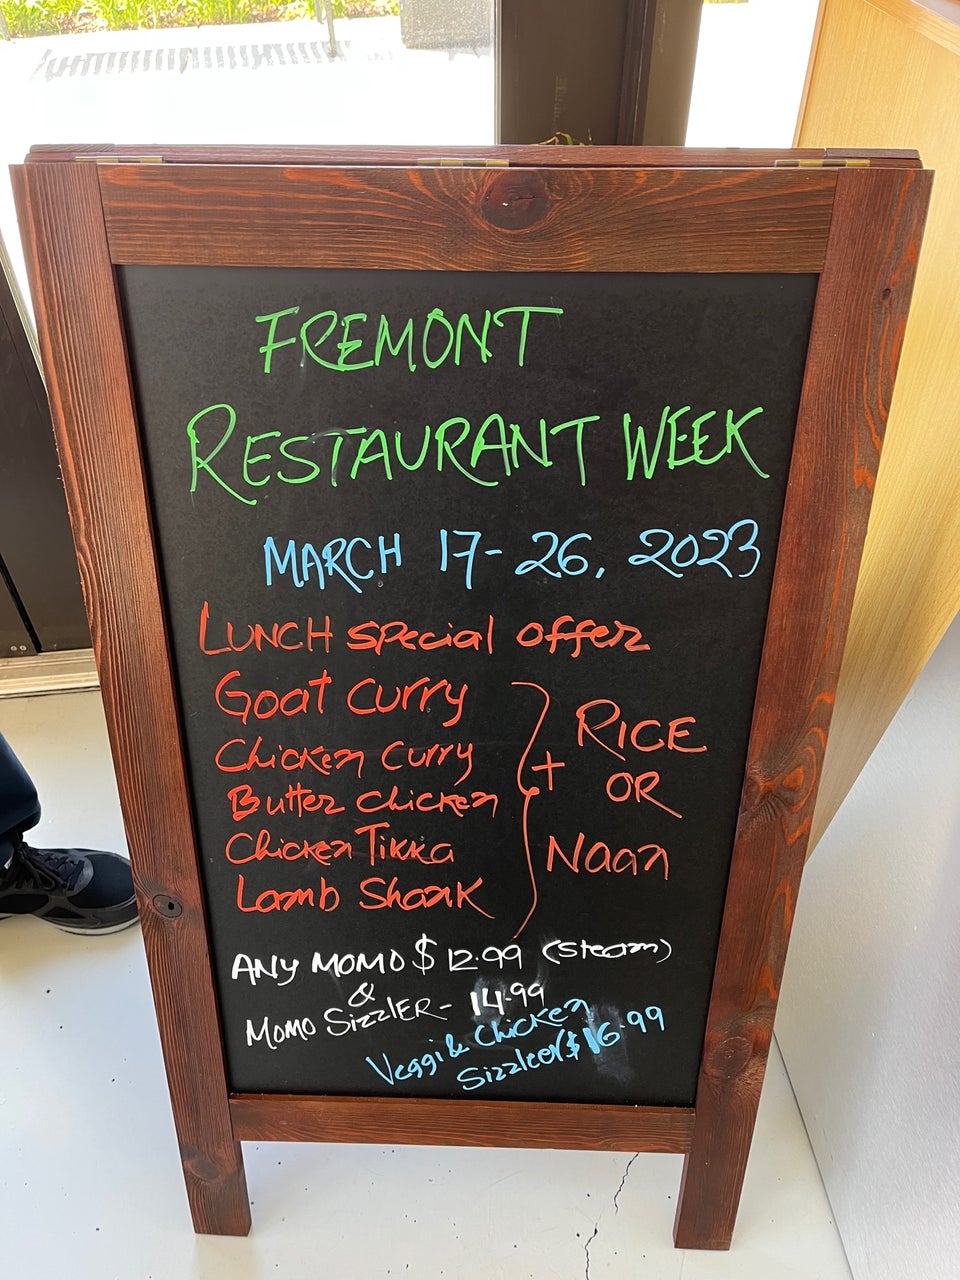 FREMONT
RESTAURANT WEEK
MARCH 17-26, 2023
LUNCH special offer
Goat curry
Chicken curry
Butter chicken
Chicken Tikka
Lamb Shank
+ RICE
OR
Naan
ANY MOMO $12.99 (Steam)
&
MOMO SizzlER - 14.99
Veggi & Chicken
Sizzler $16.99